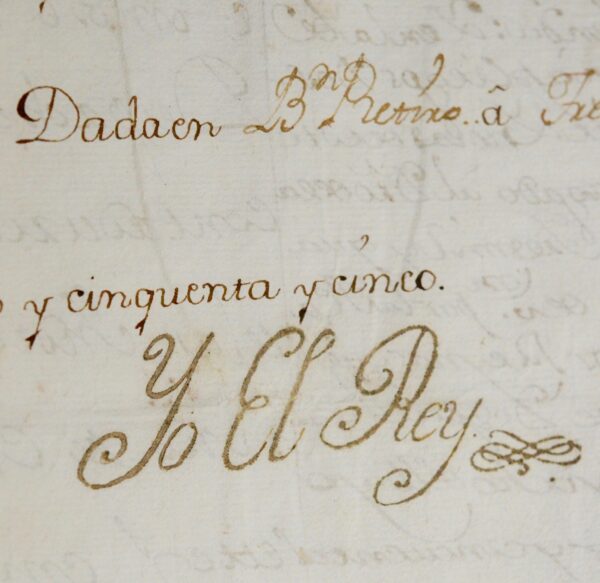 Dada en Bn Retiro. â Tre
y cinquenta y cinco.
Yo El Rey